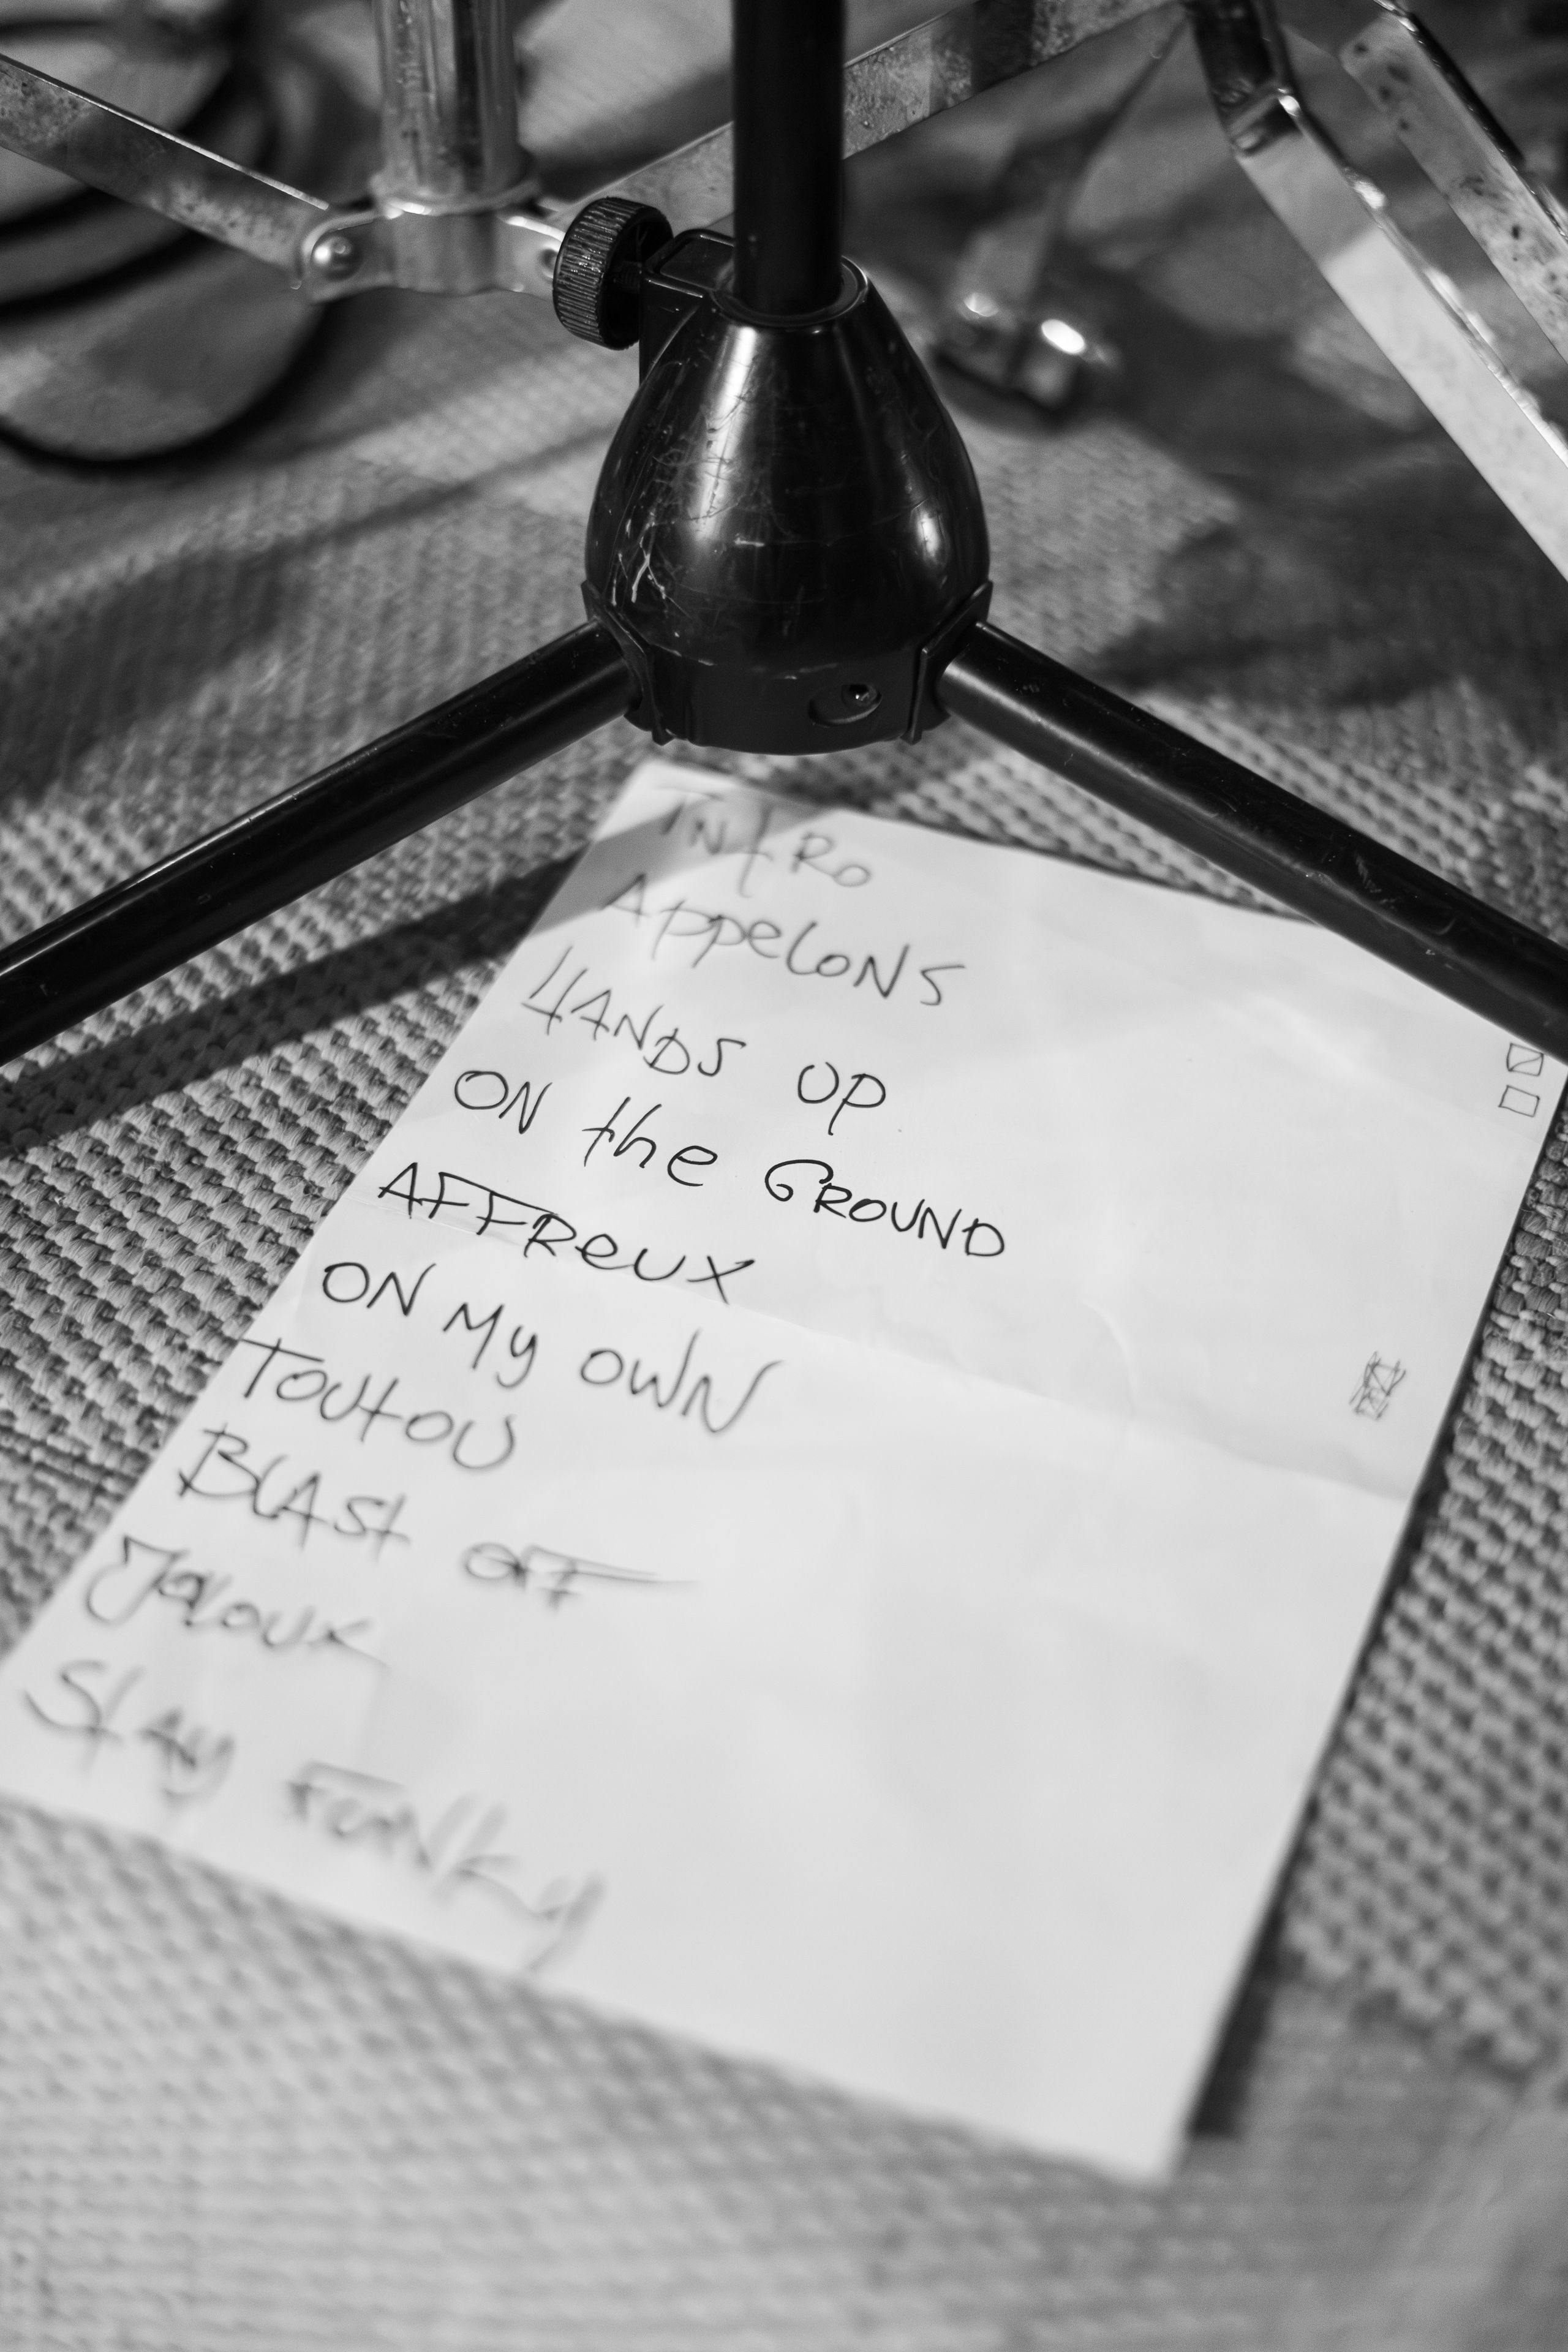 INtRo
AppelONS
HANDS UP
ON the GROUND
AFFReUX
ON My OWN
TOUtOU
BLASt OFF
JalouX
Stay FuNky